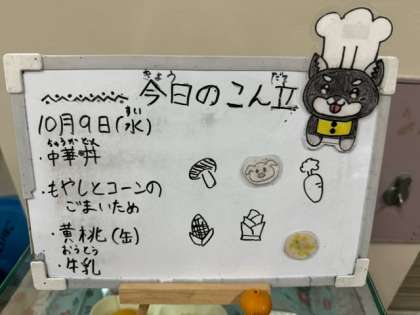 きょう だて
今日のこん立
すい
10月9日(水)
ちゅうかどん
・中華丼
・もやしとコーンの
ごまいため
・黄桃(缶)
おうとう
・牛乳